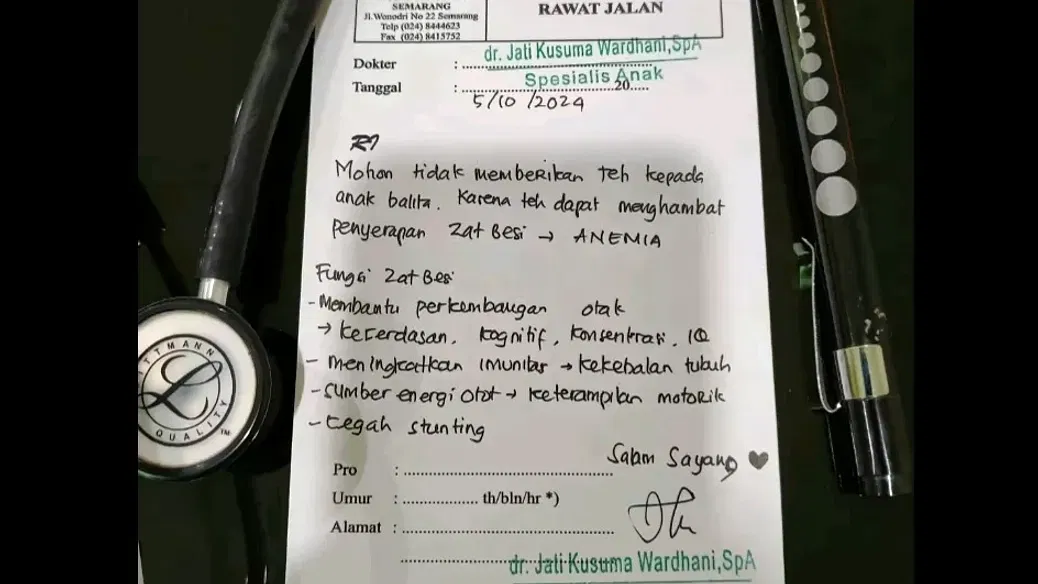 SEMARANG
Jl. Wonodri No 22 Semarang
Telp (024) 8444623
Fax (024) 8415752
RAWAT JALAN
Dokter : dr. Jati Kusuma Wardhani,SpA
Spesialis Anak
Tanggal : 20.....
5/10/2024
R/
Mohon tidak memberikan teh kepada
anak balita. Karena teh dapat menghambat
penyerapan zat Besi → ANEMIA
Fungsi zat Besi
- Membantu perkembangan otak
→ kecerdasan, kognitif, konsentrasi, IQ
- meningkatkan imunitas → kekebalan tubuh
- sumber energi otot → keterampilan motorik
- cegah stunting
Salam Sayang ♥
Pro :
Umur : th/bln/hr *)
Alamat :
dr. Jati Kusuma Wardhani,SpA
LITTMANN
QUALITY TM